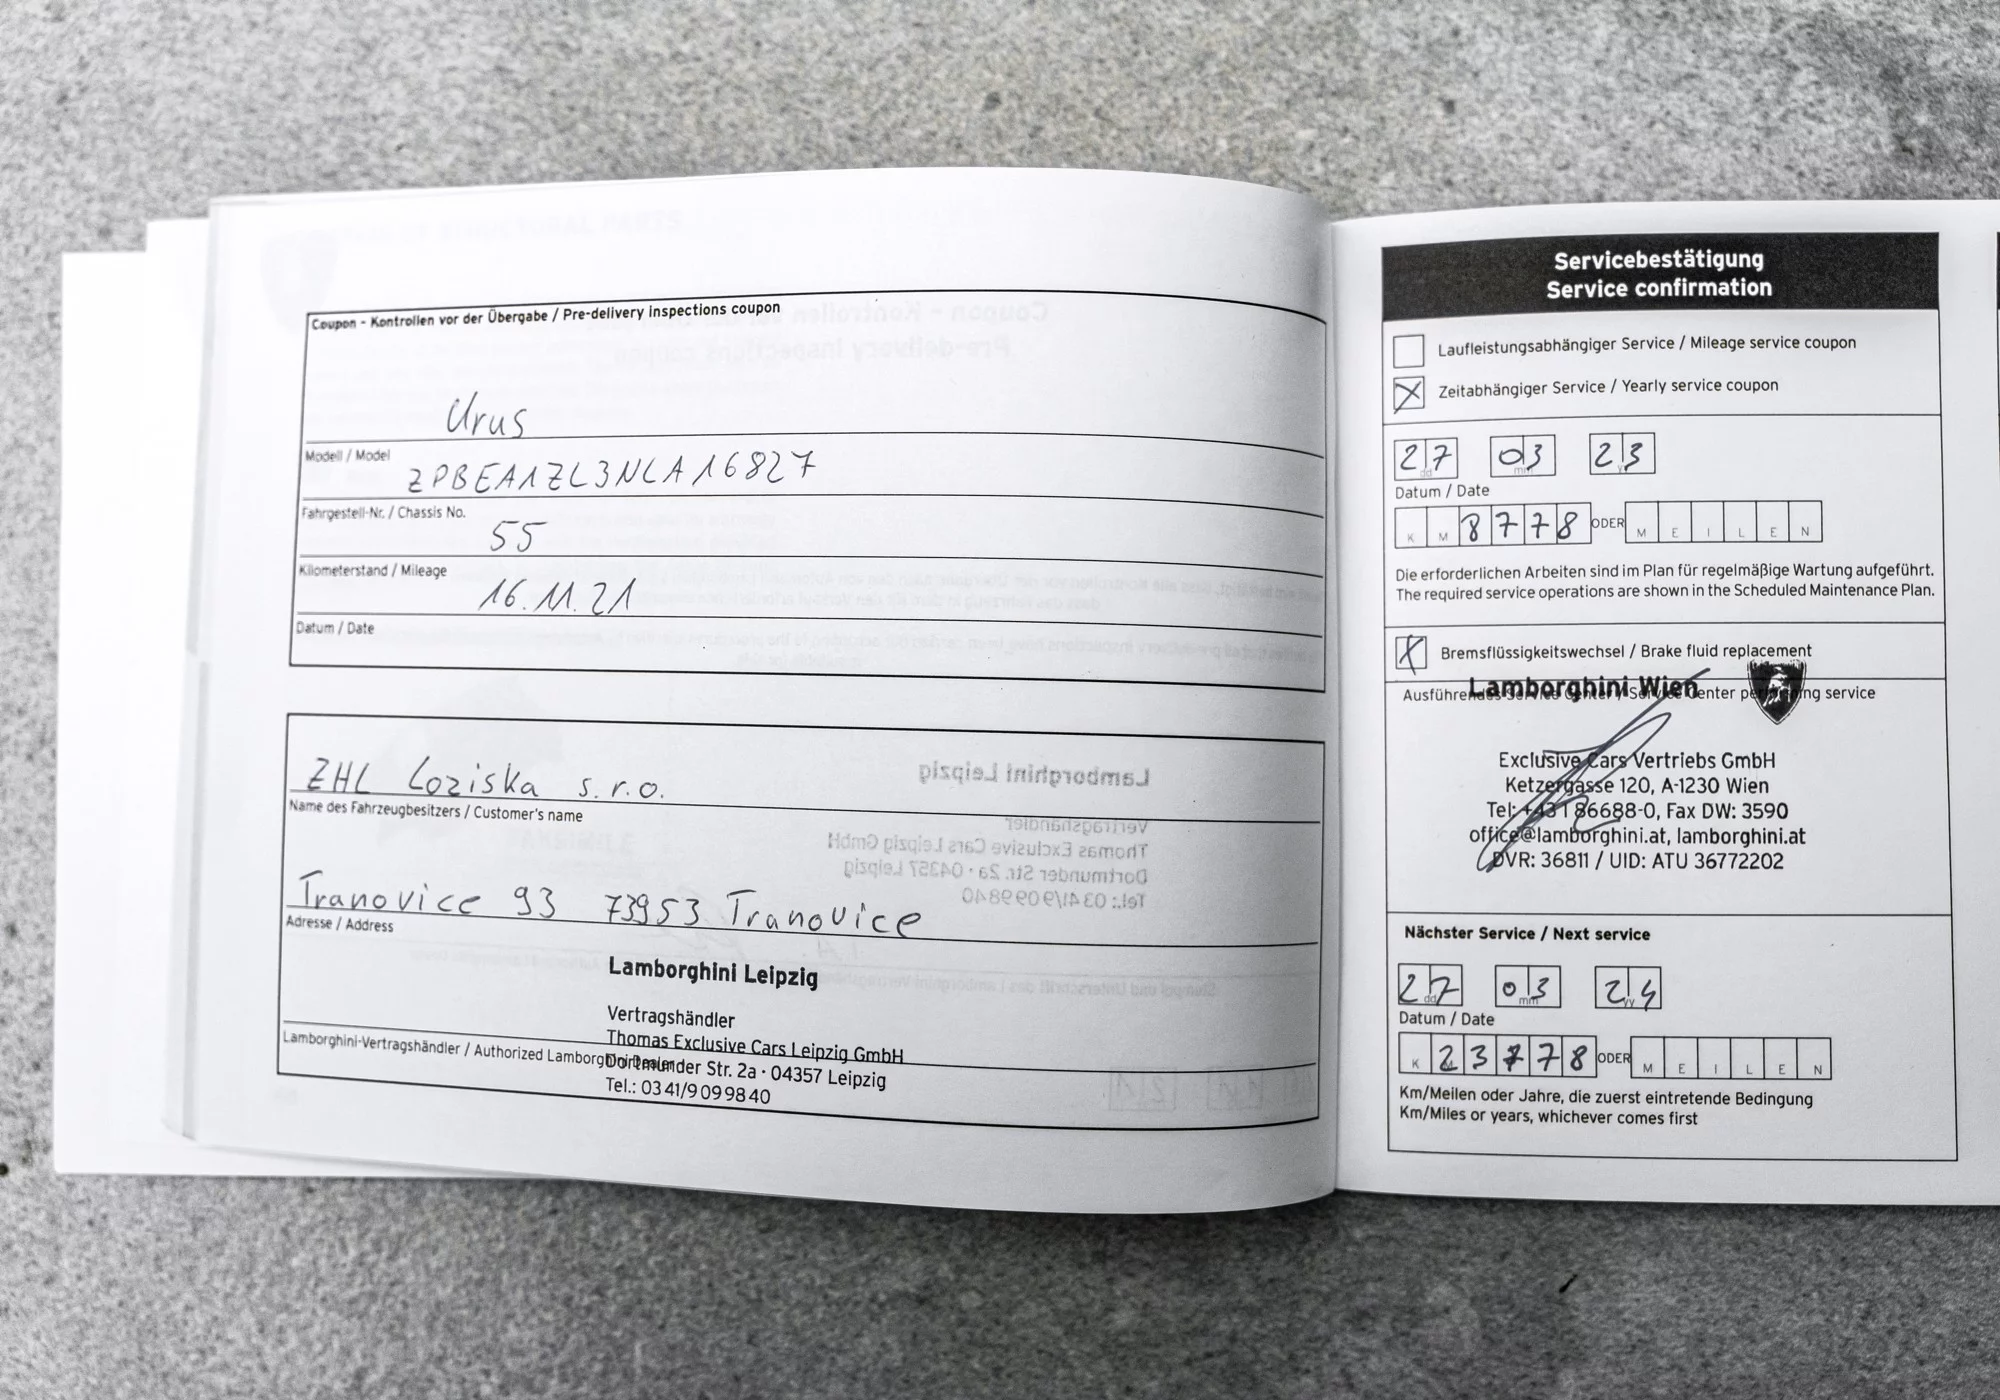 Coupon - Kontrollen vor der Übergabe / Pre-delivery inspections coupon
Urus
Modell / Model
ZPBEA1ZL3NLA16827
Fahrgestell-Nr. / Chassis No.
55
Kilometerstand / Mileage
16.11.21
Datum / Date
ZHL Loziska s.r.o.
Name des Fahrzeugbesitzers / Customer's name
Tranovice 93 73953 Tranovice
Adresse / Address
Lamborghini Leipzig
Vertragshändler
Thomas Exclusive Cars Leipzig GmbH
Lamborghini-Vertragshändler / Authorized Lamborghini Dealer
Dortmunder Str. 2a · 04357 Leipzig
Tel.: 03 41/9 09 98 40
Servicebestätigung
Service confirmation
Laufleistungsabhängiger Service / Mileage service coupon
X Zeitabhängiger Service / Yearly service coupon
27 03 23
dd mm yy
Datum / Date
K M 8778 ODER M E I L E N
Die erforderlichen Arbeiten sind im Plan für regelmäßige Wartung aufgeführt.
The required service operations are shown in the Scheduled Maintenance Plan.
X Bremsflüssigkeitswechsel / Brake fluid replacement
Lamborghini Wien
Ausführendes Service Center / Service Center performing service
Exclusive Cars Vertriebs GmbH
Ketzergasse 120, A-1230 Wien
Tel: +43 1 86688-0, Fax DW: 3590
office@lamborghini.at, lamborghini.at
DVR: 36811 / UID: ATU 36772202
Nächster Service / Next service
27 03 24
dd mm yy
Datum / Date
K 23778 ODER M E I L E N
Km/Meilen oder Jahre, die zuerst eintretende Bedingung
Km/Miles or years, whichever comes first